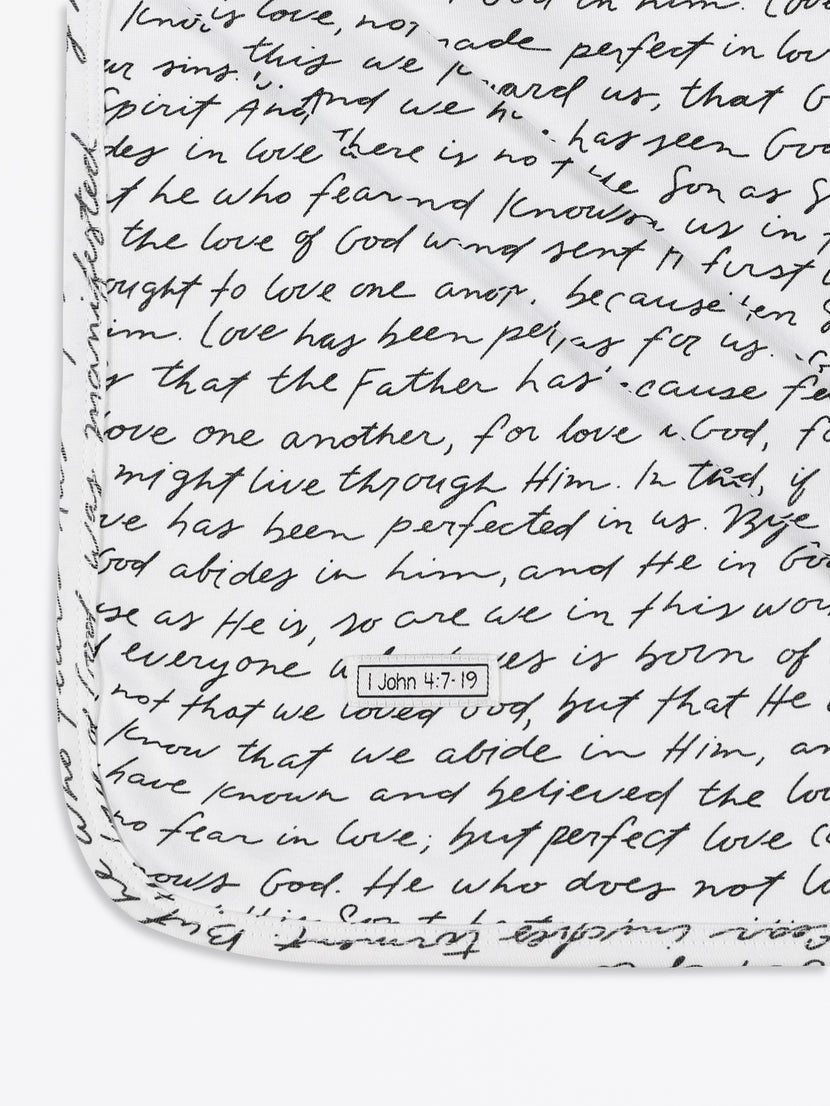 is love, no
this we
ade perfect in
ard us, that
Spirit And And we
has seen God
in love There is no
the Son as
he who fear nd Knows us in
the love of God w nd sent first
ought to love one because
Love has been as for us.
that the Father has cause
love one another, for love God,
might live through Him. In if
has been perfected in us.
God abides in him, and He in God
as He is, so are we in this
everyone is born of
1 John 4:7-19
not that we loved God, but that He
know that we abide in Him,
have known and believed the
no fear in love; but perfect love
God. He who does not
manifested
was
But he who
involves torment. But